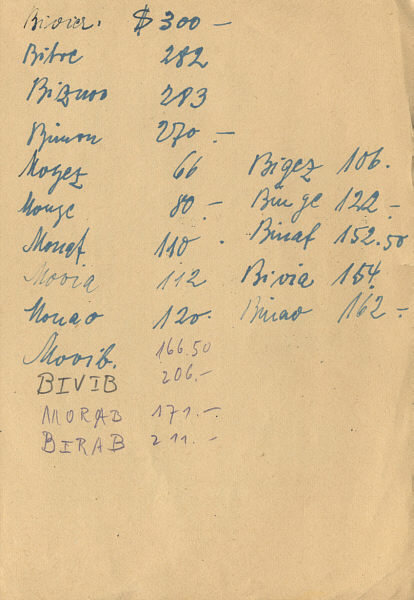 Bivier. $ 300 -
Bitoc 282
Biznoo 283
Bimon 270. -
Moyez 66 Bigez 106.
Monge 80 - Binge 122 -
Monaf 110 . Binaf 152.50
Movia 112 Bivia 154.
Monao 120. Binao 162 -
Movib. 166.50
BIVIB 206.-
MORAB 171.-
BIRAB 211.-